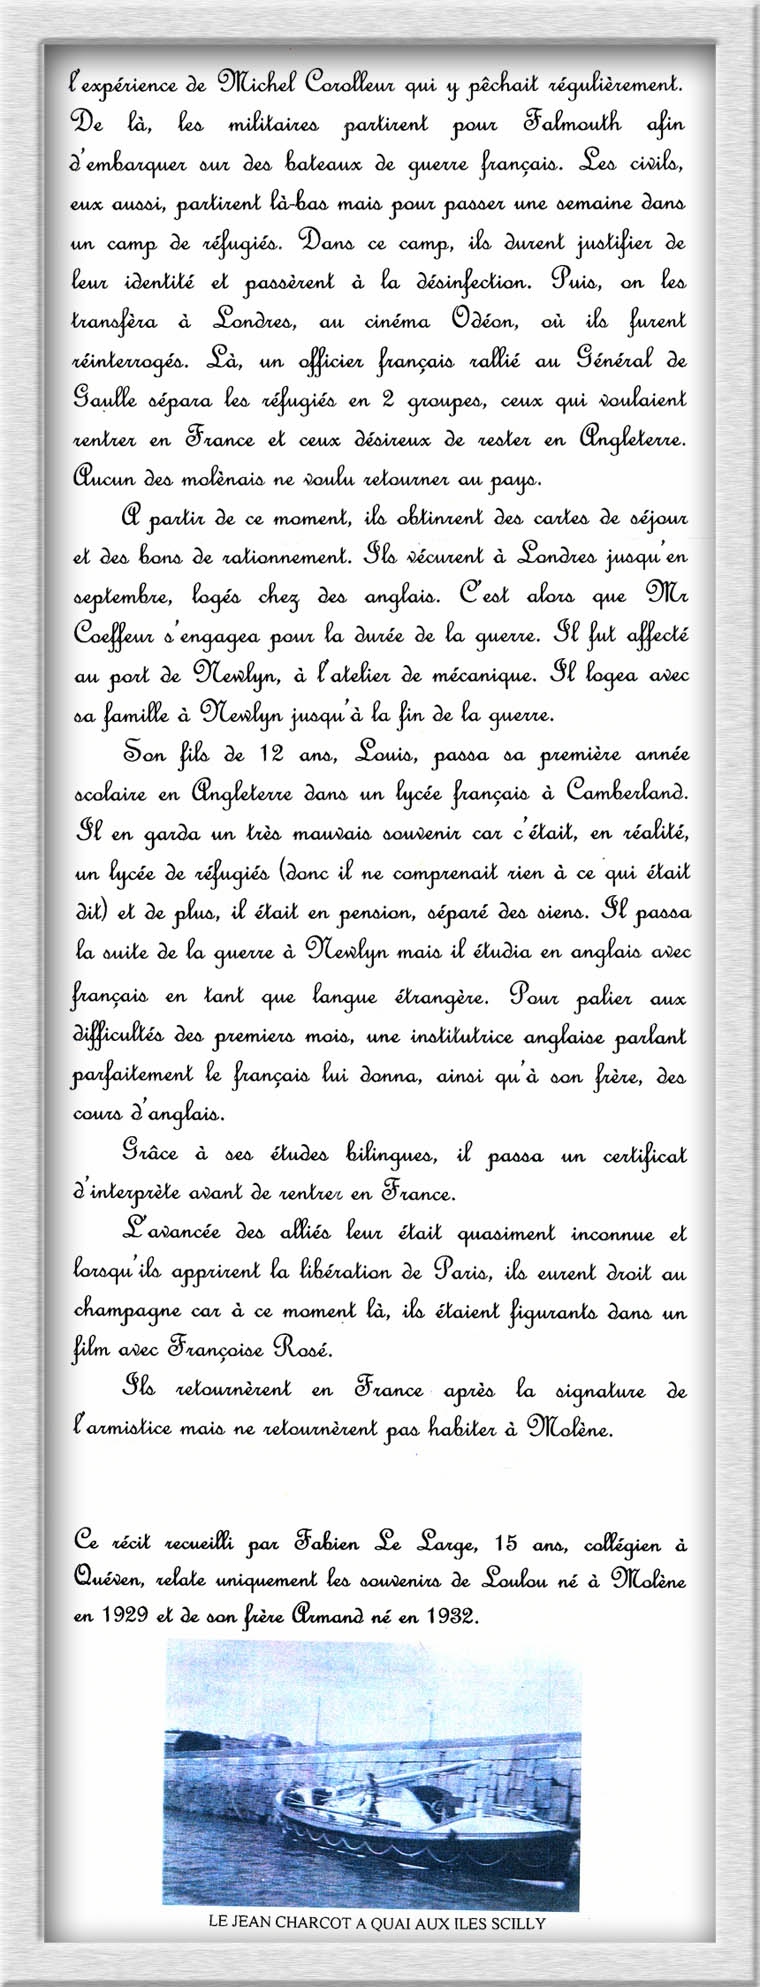 l'expérience de Michel Corolleur qui y pêchait régulièrement.
De là, les militaires partirent pour Falmouth afin
d'embarquer sur des bateaux de guerre français. Les civils,
eux aussi, partirent là-bas mais pour passer une semaine dans
un camp de réfugiés. Dans ce camp, ils durent justifier de
leur identité et passèrent à la désinfection. Puis, on les
transfèra à Londres, au cinéma Odéon, où ils furent
réinterrogés. Là, un officier français rallié au Général de
Gaulle sépara les réfugiés en 2 groupes, ceux qui voulaient
rentrer en France et ceux désireux de rester en Angleterre.
Aucun des molènais ne voulu retourner au pays.
A partir de ce moment, ils obtinrent des cartes de séjour
et des bons de rationnement. Ils vécurent à Londres jusqu'en
septembre, logés chez des anglais. C'est alors que Mr
Coeffeur s'engagea pour la durée de la guerre. Il fut affecté
au port de Newlyn, à l'atelier de mécanique. Il logea avec
sa famille à Newlyn jusqu'à la fin de la guerre.
Son fils de 12 ans, Louis, passa sa première année
scolaire en Angleterre dans un lycée français à Camberland.
Il en garda un très mauvais souvenir car c'était, en réalité,
un lycée de réfugiés (donc il ne comprenait rien à ce qui était
dit) et de plus, il était en pension, séparé des siens. Il passa
la suite de la guerre à Newlyn mais il étudia en anglais avec
français en tant que langue étrangère. Pour palier aux
difficultés des premiers mois, une institutrice anglaise parlant
parfaitement le français lui donna, ainsi qu'à son frère, des
cours d'anglais.
Grâce à ses études bilingues, il passa un certificat
d'interprète avant de rentrer en France.
L'avancée des alliés leur était quasiment inconnue et
lorsqu'ils apprirent la libération de Paris, ils eurent droit au
champagne car à ce moment là, ils étaient figurants dans un
film avec Françoise Rosé.
Ils retournèrent en France après la signature de
l'armistice mais ne retournèrent pas habiter à Molène.
Ce récit recueilli par Fabien Le Large, 15 ans, collégien à
Quéven, relate uniquement les souvenirs de Loulou né à Molène
en 1929 et de son frère Armand né en 1932.
LE JEAN CHARCOT A QUAI AUX ILES SCILLY